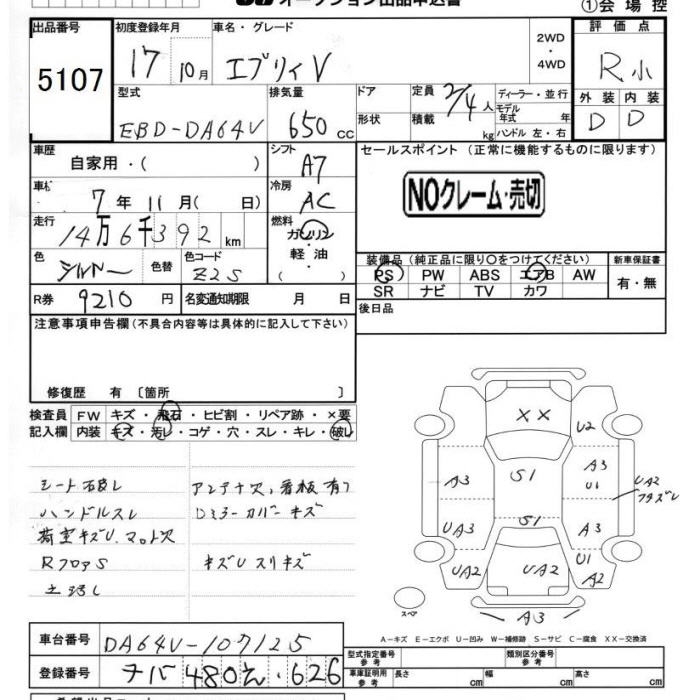 オークション出品申込書
①会場控
出品番号 5107
初度登録年月 17 10月
車名・グレード エブリィV
2WD・4WD
評価点 R小
外装 D 内装 D
型式 EBD-DA64V
排気量 650cc
ドア
形状
定員 2/4人
積載 kg
ディーラー・並行
モデル年式 年
ハンドル 左・右
車歴 自家用・( )
シフト A7
車検 7年 11月( 日)
冷房 AC
走行 14万6千392km
燃料 ガソリン・軽油・( )
色 シルバー 色替
色コード Z2S
R券 9210円 名変通知期限 月 日
セールスポイント (正常に機能するものに限ります)
NOクレーム・売切
装備品(純正品に限り○をつけてください)
PS PW ABS エアB AW
SR ナビ TV カワ
新車保証書 有・無
後日品
注意事項申告欄(不具合内容等は具体的に記入して下さい)
修復歴 有〔箇所 〕
検査員記入欄
FW キズ・飛石・ヒビ割・リペア跡・×要
内装 キズ・汚レ・コゲ・穴・スレ・キレ・破レ
アンテナ欠,看板有り
ハンドルスレ
Dミラーカバーキズ
荷室キズU.マット欠
RフロアS
キズUスリキズ
XX
U2
A3
S1
A3
U1
UA2
S1
UA3
A3
UA2
UA2
U1
A2
A3
スペア
A-キズ E-エクボ U-凹み W-補修跡 S-サビ C-腐食 XX-交換済
車台番号 DA64V-107125
登録番号 チバ 480 626
型式指定番号 参考
類別区分番号 参考
車庫証明用 参考 長さ cm 幅 cm 高さ cm